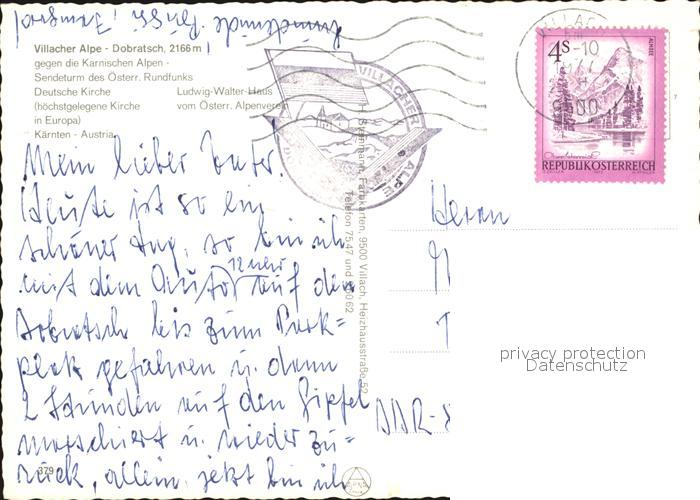 Villacher Alpe - Dobratsch, 2166 m
gegen die Karnischen Alpen -
Sendeturm des Österr. Rundfunks
Deutsche Kirche Ludwig-Walter-Haus
(höchstgelegene Kirche vom Österr. Alpenverein
in Europa)
Kärnten - Austria
Mein lieber
Heute ist so ein
schöner Tag, so bin ich
mit dem Auto auf den
12 Uhr
Dobratsch bis zum Park=
platz gefahren u. dann
2 Stunden auf den Gipfel
marschiert u. wieder zu=
rück, allein. jetzt bin ich
379
Farbkarten, 9500 Villach, Herzhausstraße 52
Telefon 7547 und
VILLACHER ALPE
VILLACH
4S
ALMSEE
REPUBLIK ÖSTERREICH
Herrn
DDR-
privacy protection
Datenschutz